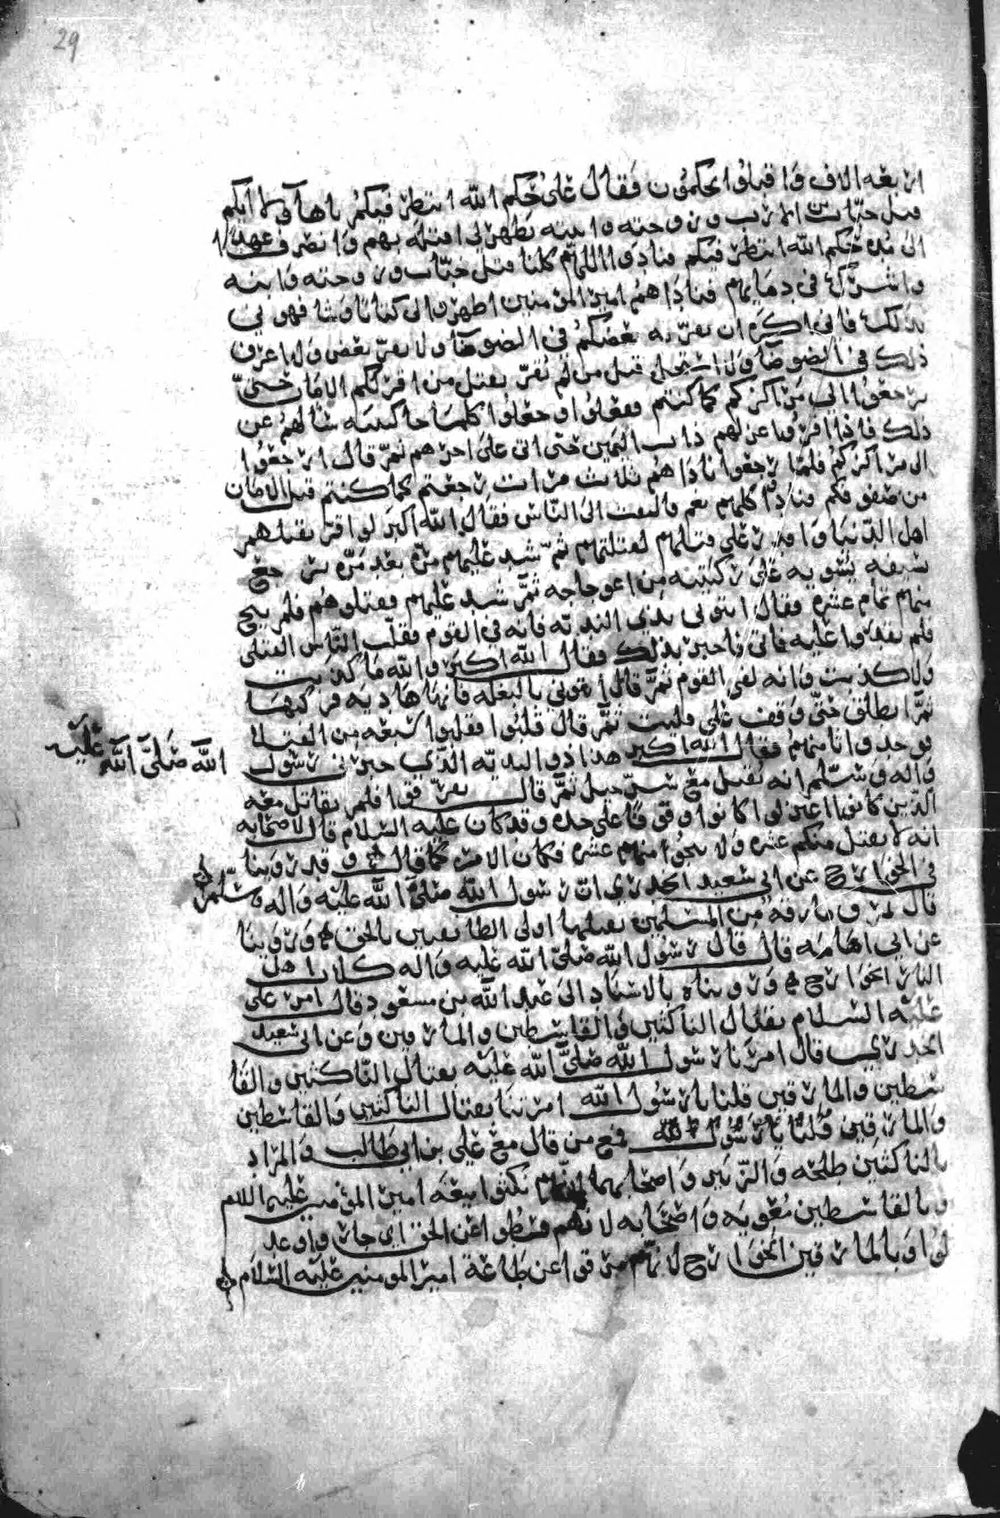 29
اربعه الاف واقبلوا يحكمون فقال علي حكم الله انتظر فيكم يا هآولآ ايكم
قتل خبّاب بن الارت وزوجته وابنته يظهر لي اقتله بهم وانصرف عهدًا
الى مده حكم الله انتظر فيكم فنادوا اللهم كلنا قتل خباب وزوجته وابنه
واشرك في دمايهم فناداهم امير المؤمنين اظهروا الى كتائبا وشافهوني
بذلك فاني اكره ان يقرّ به بعضكم في الضوضآ ولا يقرّ بعض ولا اعرف
ذلك في الضوضآ ولا استحل قتل من لم يقرّ بقتل من اقر لكم الامان حتى
ترجعوا الى مراكزكم كما كنتم ففعلوا وجعلوا كلما جا كتيبه سالهم عن
ذلك فاذا اقروا عزلهم ذات اليمين حتى اتى على اخرهم ثم قال ارجعوا
الى مراكزكم فلما رجعوا ناداهم ثلاث مرات رجعتم كما كنتم قبل الامان
من صفوفكم فنادوا كلهم نعم فالتفت الى الناس فقال الله اكبر لو اقر بقتلهم
اهل الدنيا واقدر على قتلهم لقتلتهم ثم شد عليهم مرة بعد مرة يرجع
بسيفه يسويه على ركبتيه من اعوجاجه ثم شد عليهم فقتلوهم فلم ينج
منهم تمام عشره فقال ايتوني بذي الثديه فانه في القوم فقلب الناس القتلى
فلم يقدروا عليه فاتي فاخبر بذلك فقال الله اكبر والله ما كذبت
ولا كذبت وانه لفي القوم ثم قال ايتوني بالبغله فانها هاديه فركبها
ثم انطلق حتى وقف على قليب ثم قال قلبوا فقلبوا سبعه من القتلا
فوجدوا ثامنهم فقال الله اكبر هذا ذو الثديه الذي خبرني رسول
الله صلى الله عليه
واله وسلم انه يقتل مع شر خيل ثم قال تفرقوا فلم يقاتل معه
الذين كانوا اعتزلوا كانوا وقوفا على حده وقد كان عليه السلام قال لاصحابه
انه لا يقتل منكم عشره ولا ينجوا منهم عشره فكان الامر كما قال وقد روينا
في الخوارج عن ابي سعيد الخدري ان رسول الله صلى الله عليه واله وسلم
قال تمرق مارقه من المسلمين يقتلها اولى الطائفتين بالحق وروينا
عن ابي امامه قال قال رسول الله صلى الله عليه واله كلاب اهل
النار الخوارج وروينا بالاسناد الى عبد الله بن مسعود قال امر علي
عليه السلام بقتال الناكثين والقاسطين والمارقين وعن ابي سعيد
الخدري قال امرنا رسول الله صلى الله عليه بقتال الناكثين والقا
سطين والمارقين قلنا يا رسول الله امرتنا بقتال الناكثين والقاسطين
والمارقين قلنا يا رسول الله فمع من قال مع علي بن ابي طالب والمراد
بالناكثين طلحه والزبير واصحابهما لانهم نكثوا بيعه امير المؤمنين عليه السلام
وبالقاسطين معويه واصحابه لانهم قسطوا عن الحق اي جاروا وعد
لوا وبالمارقين الخوارج لانهم مرقوا عن طاعة امير المومنين عليه السلام